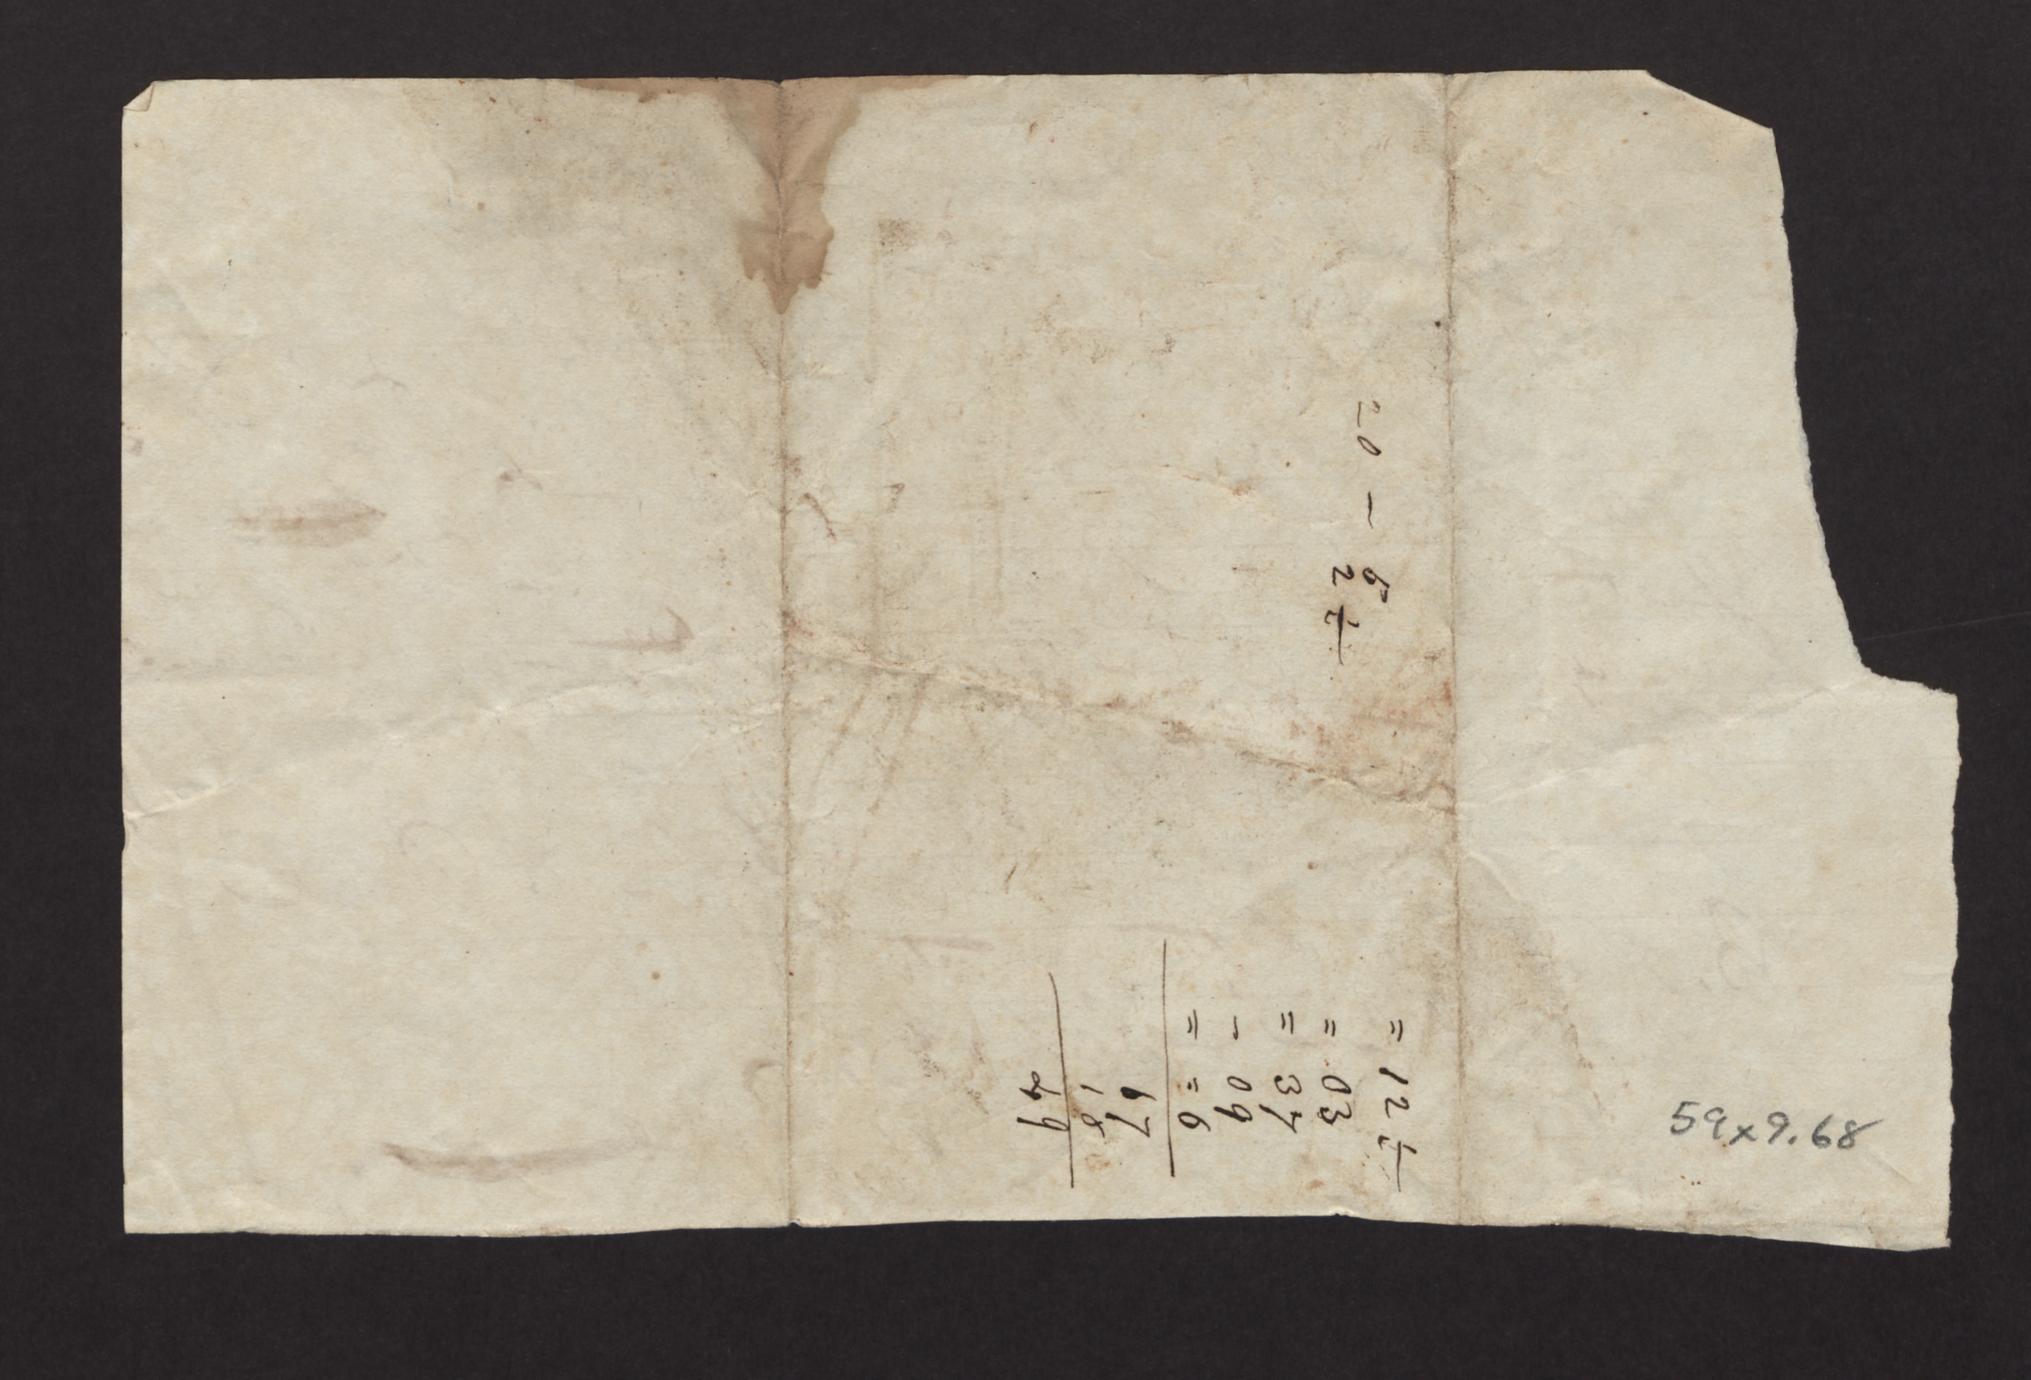 20 - 6
2 1/2
= 12 1/2
= 03
= 37
- 09
= = 6
67
18
49
59x9.68